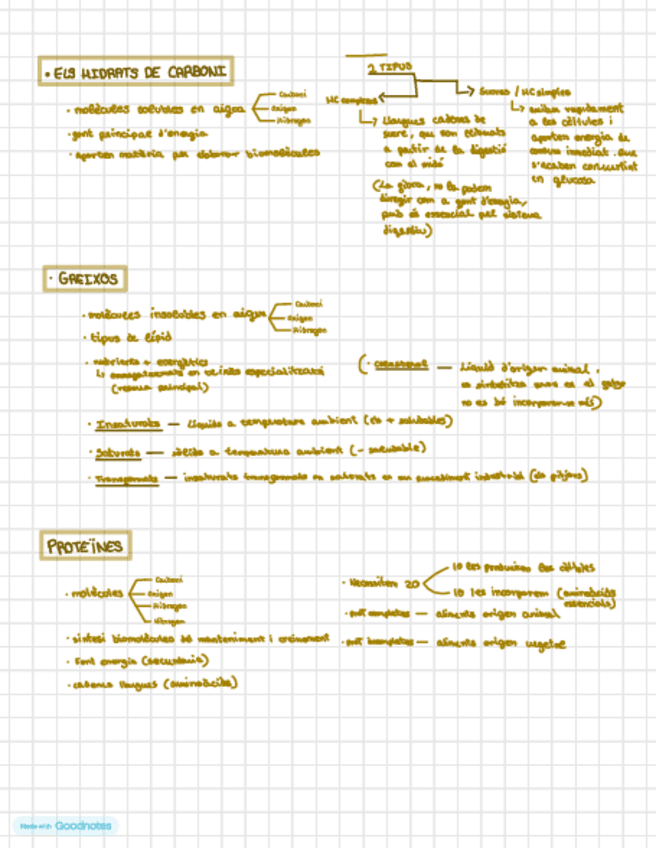 • ELS HIDRATS DE CARBONI
• molècules solubles en aigua
Carboni
Oxigen
Hidrogen
• font principal d'energia
• aporten matèria per elaborar biomolècules
2 TIPUS
HC complexos
Llargues cadenes de
sucre, que son
a partir de la digestió
com el midó
(La fibra, no la podem
dirigir com a font d'energia,
però és essencial pel sistema
digestiu)
Sucres / HC simples
ràpidament
a les cèl·lules i
aporten energia de
immediat. Que
s'acaben convertint
en glucosa
• GREIXOS
• molècules insolubles en aigua
Carboni
Oxigen
Hidrogen
• tipus de lípid
• nutrients + energètics
en teixits especialitzats
(reserva principal)
(• colesterol — Líquid d'origen animal,
es sintetitza en el fetge
no es bo incorporar-ne més)
• Insaturats — Líquids a temperatura ambient (els + saludables)
• Saturats — sòlids a temperatura ambient (- saludable)
• Transgenats — insaturats transformats en saturats en un procediment industrial (els pitjors)
PROTEÏNES
• molècules
Carboni
Oxigen
Hidrogen
Nitrogen
• síntesi biomolècules de manteniment i creixement
• Font energia (secundària)
• cadenes llargues (aminoàcids)
• Necessiten 20
10 les produeixen les cèl·lules
10 les incorporem (aminoàcids
essencials)
• prot completes — aliments origen animal
• prot incompletes — aliments origen vegetal
Made with Goodnotes